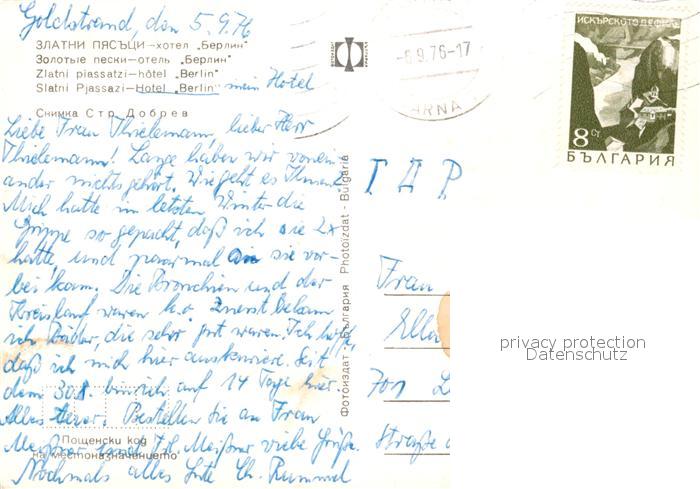 Goldstrand, den 5.9.76
ЗЛАТНИ ПЯСЪЦИ—хотел „Берлин"
Золотые пески—отель „Берлин"
Zlatni piassatzi—hôtel „Berlin"
Slatni Pjassazi—Hotel „Berlin" mein Hotel
Снимка Стр. Добрев
Liebe Frau Thielemann, lieber Herr
Thielemann! Lange haben wir vonein-
ander nichts gehört. Wie geht es Ihnen?
Mich hatte im letzten Winter die
Grippe so gepackt, daß ich sie 2x
hatte, und paarmal an sie vor-
bei kam. Die Bronchien und der
Kreislauf waren k.o. Zuerst bekam
ich Bäder, die sehr gut waren. Ich hoffe,
daß ich mich hier auskuriere. Seit
dem 30.8. bin ich auf 14 Tage hier.
Alles teuer. Bestellen Sie an Frau
Meißner und Frl. Meißner viele Grüße.
Nochmals alles Gute Ch. Rummel
Пощенски код
на местоназначението
Фотоиздат - България Photoizdat - Bulgaria
-6.9.76-17
ARNA
ИСКЪРСКОТО ДЕФИЛЕ
8 Ст.
БЪЛГАРИЯ
ГДР
Frau
Ella
701 L
Straße
privacy protection
Datenschutz